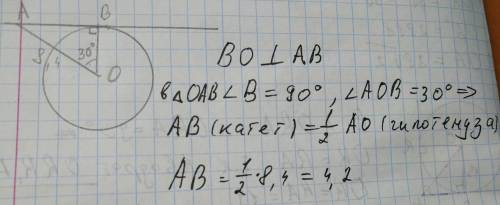 A B
8,4
30°
O
BO⊥AB
в△OAB∠B=90°, ∠AOB=30°⇒
AB (катет)=1/2 AO (гипотенуза)
AB=1/2·8,4=4,2